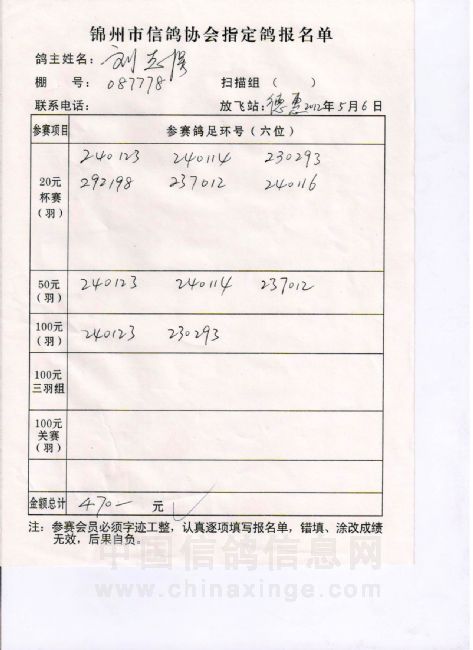 锦州市信鸽协会指定鸽报名单
鸽主姓名：刘志
棚 号：087778 扫描组（ ）
联系电话： 放飞站：德惠 2012年5月6日
参赛项目 参赛鸽足环号（六位）
20元杯赛（羽） 240123 240114 230293
292198 237012 240116
50元（羽） 240123 240114 237012
100元（羽） 240123 230293
100元三羽组
100元关赛（羽）
金额总计 470- 元 ✓
注：参赛会员必须字迹工整，认真逐项填写报名单，错填、涂改成绩
无效，后果自负。
中国信鸽信息网
www.chinaxinge.com